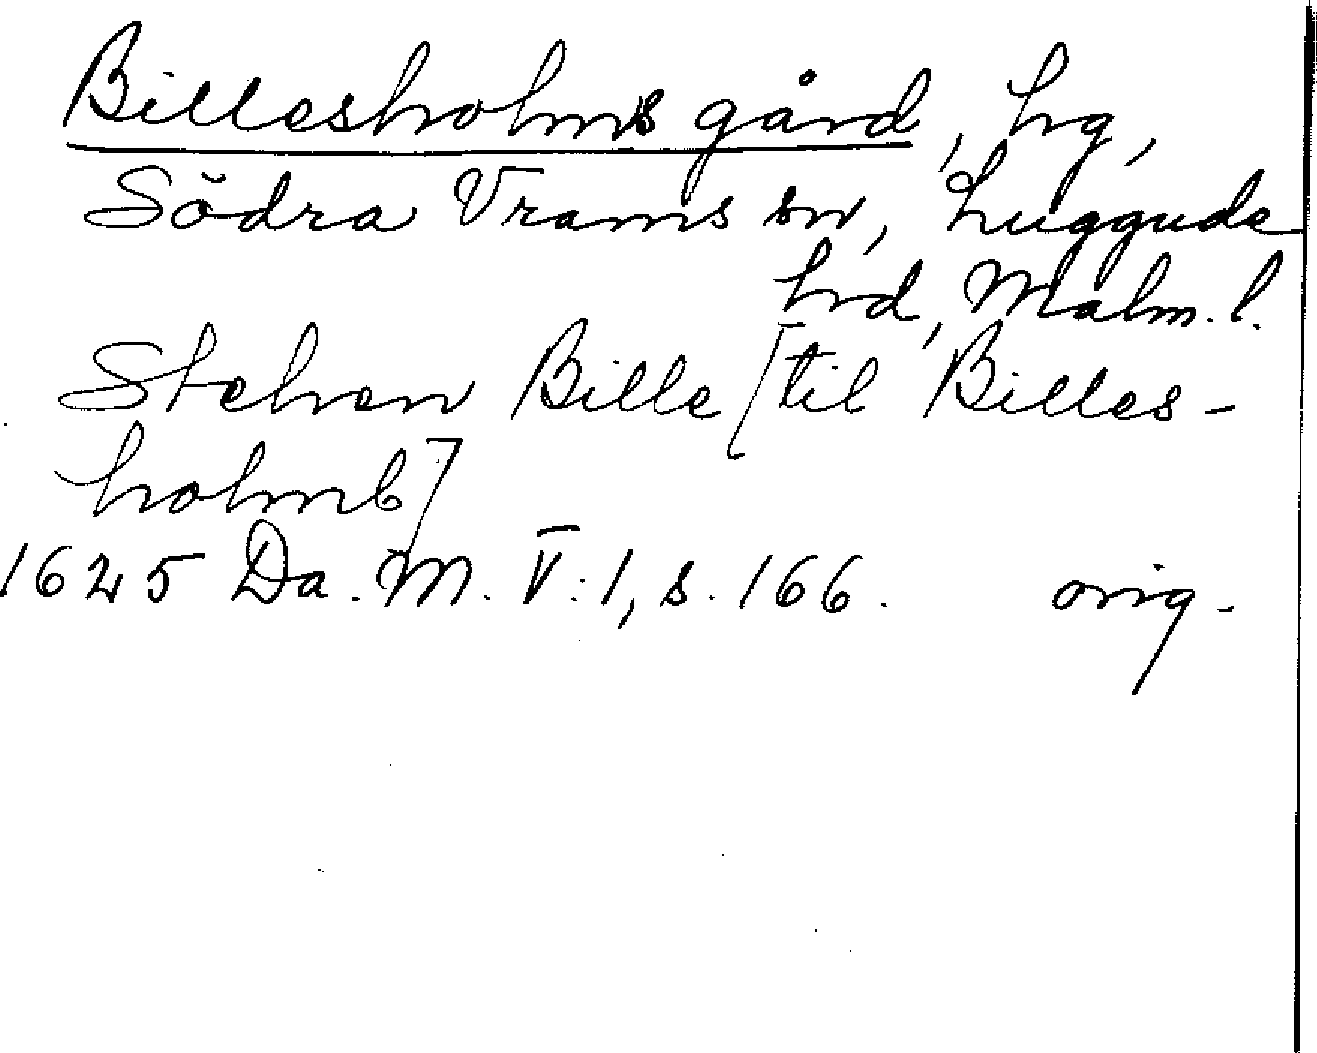 Billesholms gård, hg,
Södra Vrams sn, Luggude
hd, Malm. l.
Stehen Bille [til Billes-
holmb]
1625 Da. M. V:1, s. 166. orig.